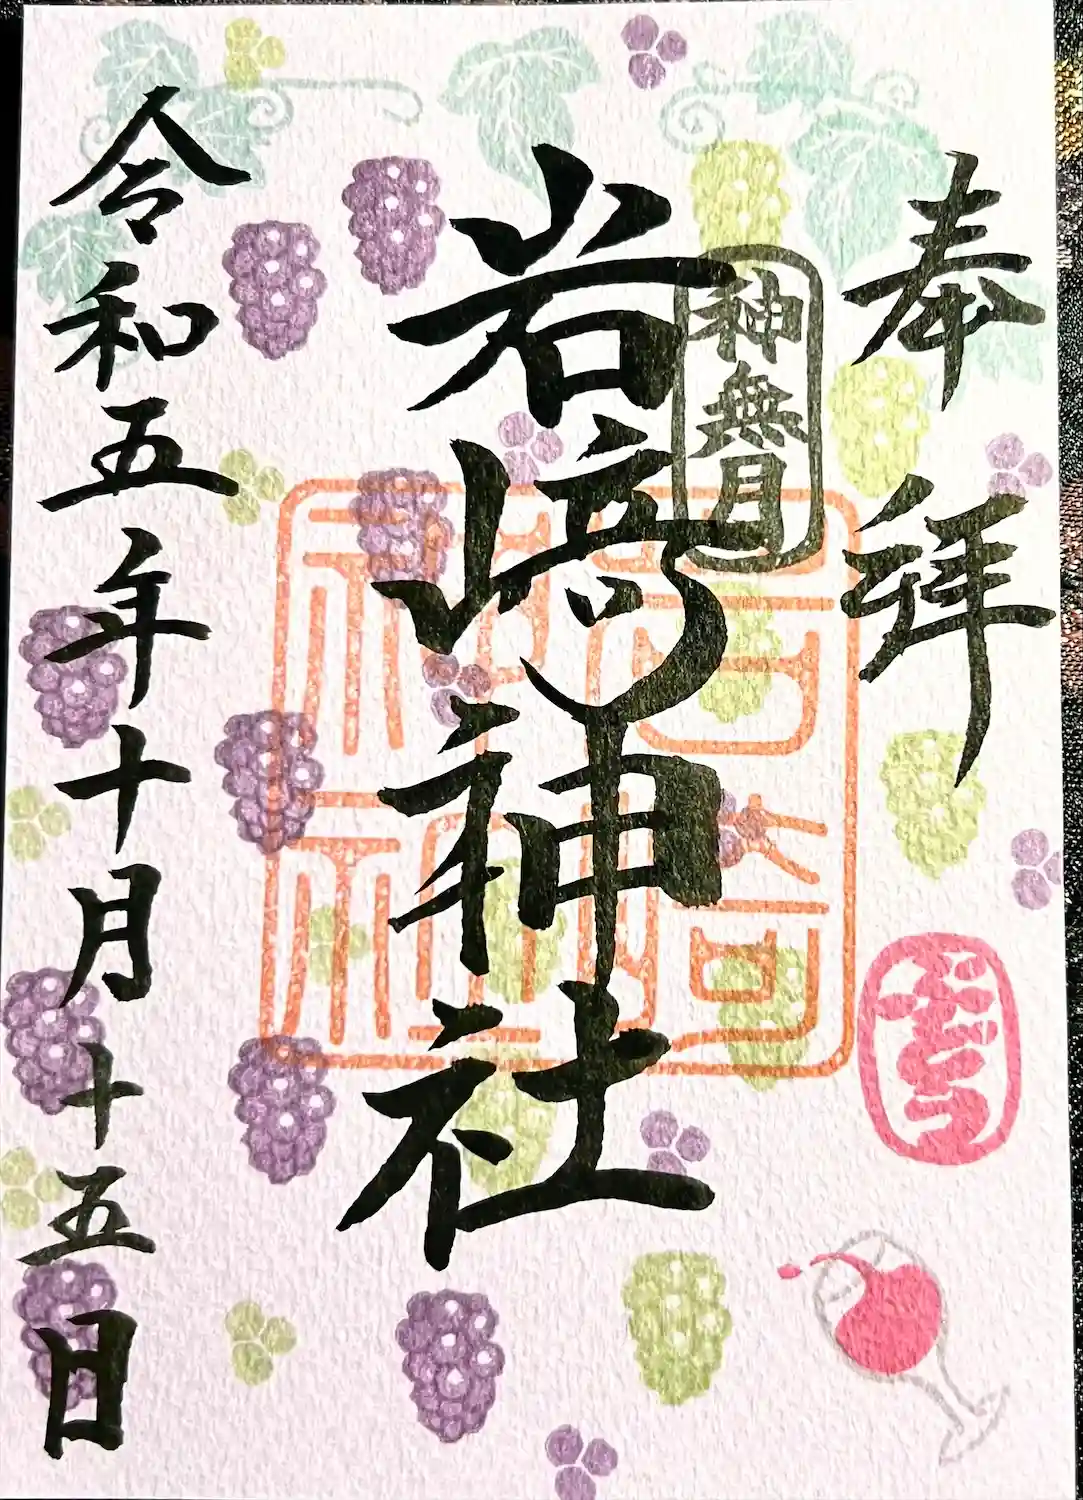 奉拝
神無月
岩崎神社
令和五年十月十五日